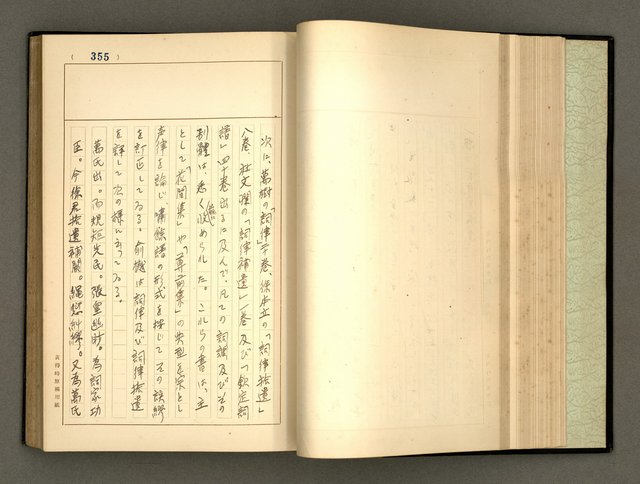 ( 355 )
次に、萬樹の「詞律」二十巻、徐本立の「詞律拾遺」
八巻、杜文瀾の「詞律補遺」一巻及び「欽定詞
譜」四十巻出るに及んで、凡ての詞調及びその
別體は、悉く收められた。これらの書は、主
として「花間集」や「尊前集」の典型を宗とし
声律を論じ嘯餘譜の形式を採じてその誤謬
を訂正してゐる。俞樾は詞律及び詞律拾遺
を評して次の様に言ってゐる。
萬氏出。而規矩先民。張皇幽眇。為詞家功
臣。今徐君拾遺補闕。繩愆糾繆。又為萬氏
黃得時原稿用紙